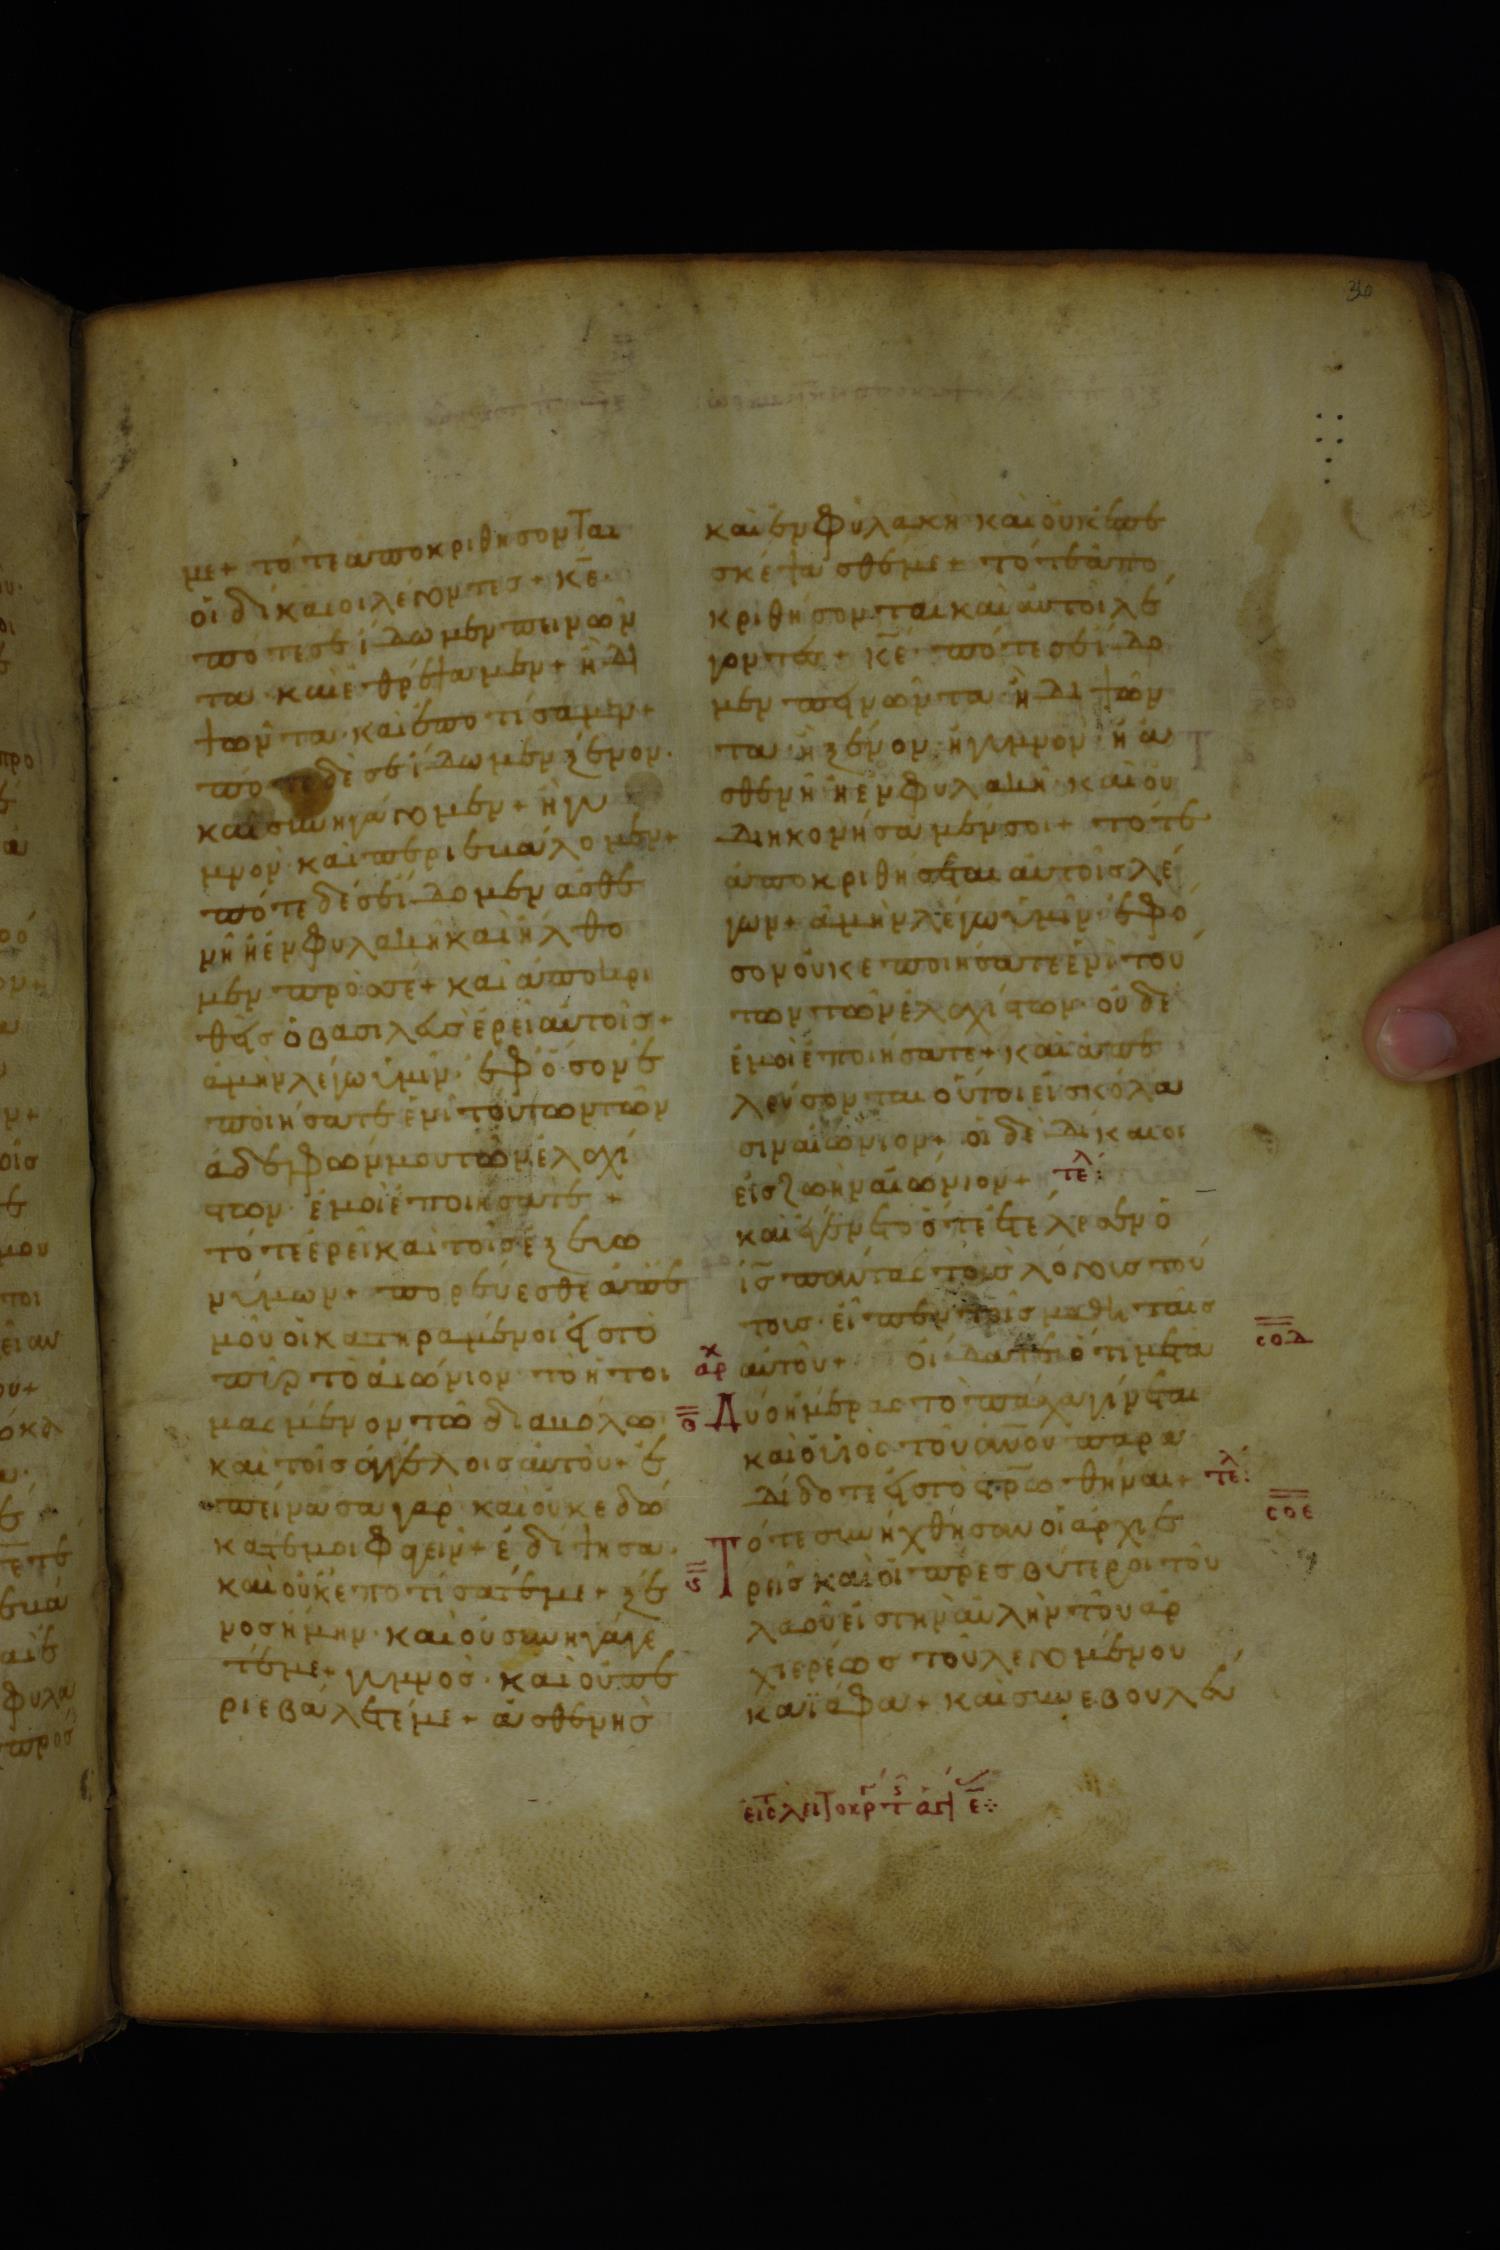 36
με+ τότε ἀποκριθήσονται
οἱ δίκαιοι λέγοντες + κε·
πότε σε εἴδωμεν πεινῶν
τα καὶ ἐθρέψαμεν+ ἢ δι
ψῶντα· καὶ ἐποτίσαμεν+
πότε δὲ σὲ εἴδωμεν ξένον·
καὶ συνηγάγομεν + ἢ γυ
μνὸν καὶ περιεβάλομεν+
πότε δέ σε εἴδομεν ἀσθε
νῆ ἢ ἐν φυλακῆ καὶ ἤλθο
μεν πρὸς σέ+ καὶ ἀποκρι
θεὶς ὁ βασιλεὺς ἐρεῖ αὐτοῖς+
ἀμὴν λέγω ὑμῖν· ἐφ ὅσον ἐ
ποιήσατε ἑνὶ τούτων τῶν
ἀδελφῶν μου τῶν ἐλαχί
στων· ἐμοὶ ἐποιήσατε +
τότε ἐρεῖ καὶ τοῖς ἐξ εὐω
νύμων+ πορεύεσθε ἀπ ἐ
μοῦ οἱ κατηραμένοι εἰς τὸ
πῦρ τὸ αἰώνιον· τὸ ἡτοι
μασμένον τῶ διαβόλω·
καὶ τοῖς ἀγγέλοις αὐτοῦ+ ἐ
πείνασα γὰρ καὶ οὐκ ἐδώ
κατέ μοι φαγεῖν+ ἐδίψησα·
καὶ οὐκ ἐποτίσατέ με+ ξέ
νος ἤμην· καὶ οὐ συνηγάγε
τέ με+ γυμνὸς· καὶ οὐ πε
ριεβάλετέ με+ ἀσθενὴς
καὶ ἐν φυλακῆ καὶ οὐκ ἐπε
σκέψασθέ με+ τότε ἀπο
κριθήσονται καὶ αὐτοὶ λέ
γοντες+ κε· πότε σε εἴδο
μεν πεινῶντα ἢ διψῶν
τα· ἢ ξένον· ἢ γυμνὸν· ἢ ἀ
σθενῆ ἢ ἐν φυλακῆ· καὶ οὐ
διηκονήσαμέν σοι+ τότε
ἀποκριθήσεται αὐτοῖς λέ
γων+ ἀμὴν λέγω ὑμῖν· ἐφ ὅ
σον οὐκ ἐποιήσατε ἑνὶ τού
των τῶν ἐλαχίστων· οὐδὲ
ἐμοὶ ἐποιήσατε+ καὶ ἀπε
λεύσονται οὗτοι εἰς κόλα
σιν αἰώνιον+ οἱ δὲ δίκαιοι
εἰς ζωὴν αἰώνιον+ τελ:
καὶ ἐγένετο ὅτε ἐτέλεσεν ὁ
ις πάντας τοὺς λόγους τού
τους· εἶπεν τοῖς μαθηταῖς
αὐτοῦ+ οἴδατε ὅτι μετὰ
σοδ
αρχ
Δύο ἡμέρας τὸ πάσχα γίνεται
καὶ ὁ υἱὸς τοῦ ανου παρα
δίδοται εἰς τὸ στρωθῆναι+ τελ:
σοε
Τότε συνήχθησαν οἱ ἀρχιε
ρεῖς καὶ οἱ πρεσβύτεροι τοῦ
λαοῦ εἰς τὴν αὐλὴν τοῦ ἀρ
χιερέως τοῦ λεγομένου
καϊάφα+ καὶ συνεβουλεύ